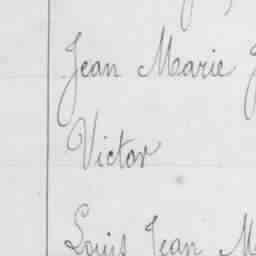 Jean Marie
Victor
Louis Jean